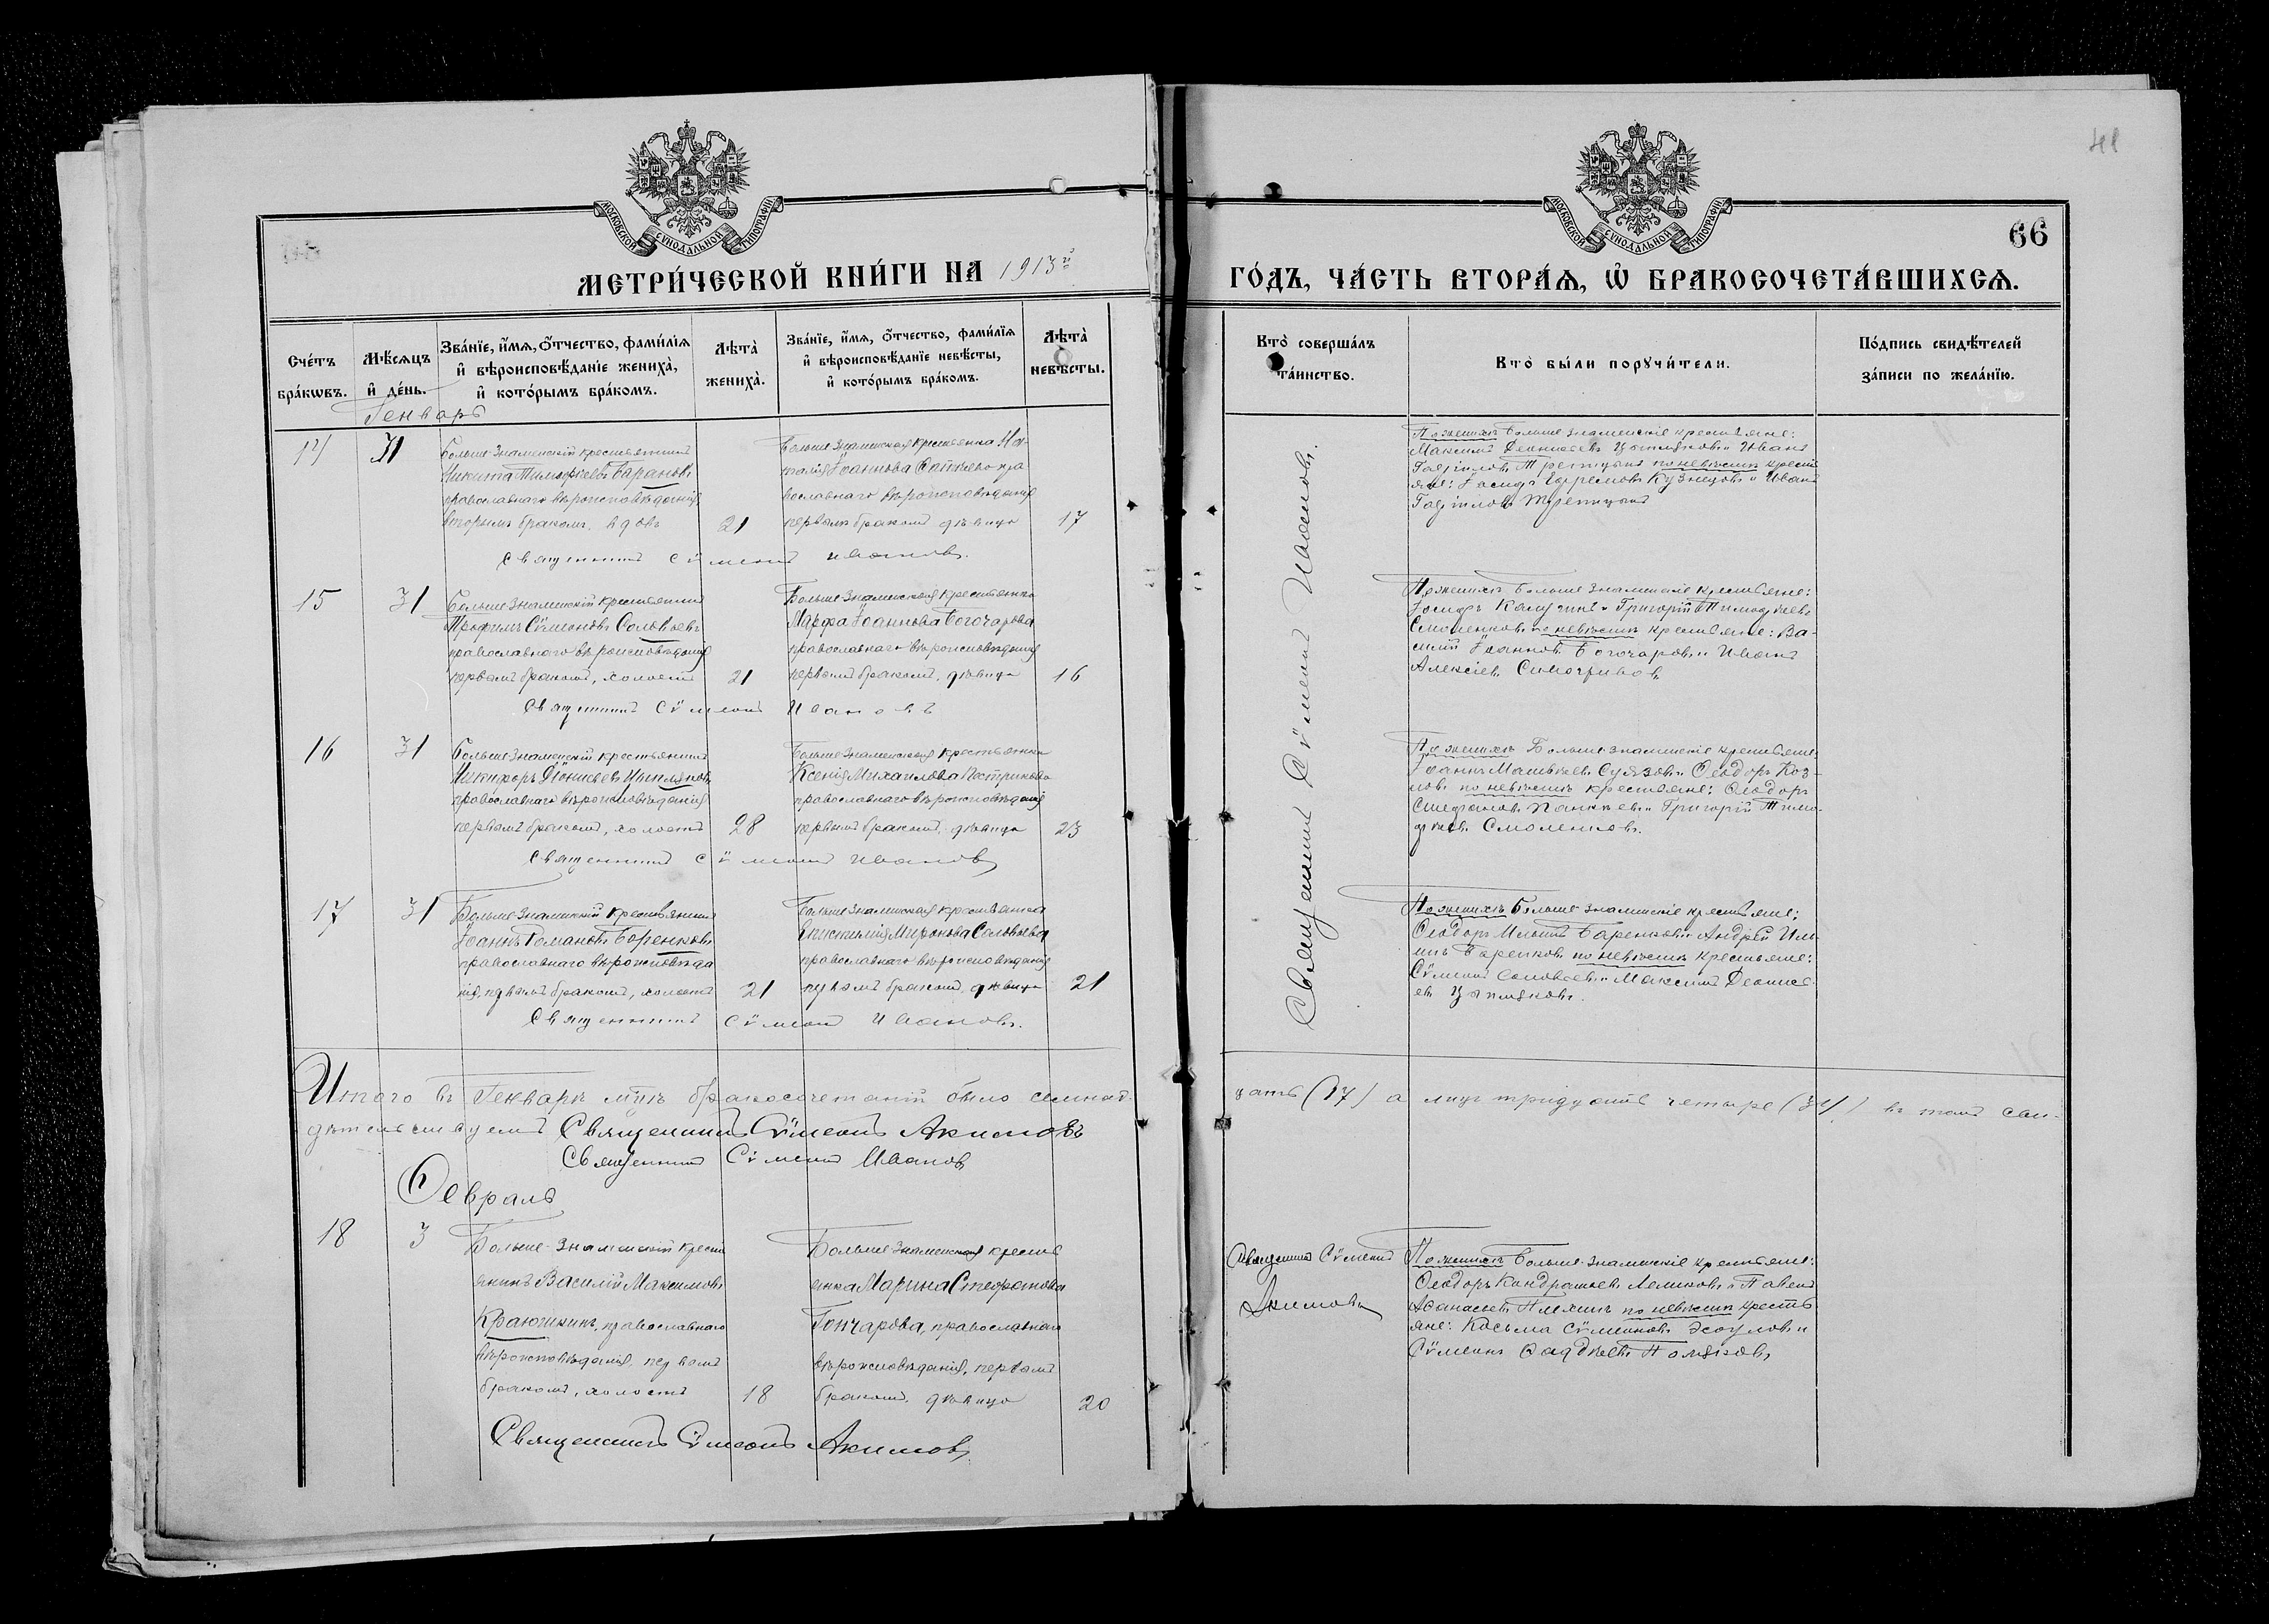 41
66
МОСКОВСКОЙ СѴНОДАЛЬНОЙ ТИПОГРАФІИ
МОСКОВСКОЙ СѴНОДАЛЬНОЙ ТИПОГРАФІИ
МЕТРИ́ЧЕСКОЙ КНИ́ГИ НА 1913й ГО́ДЪ, ЧА́СТЬ ВТОРА́Ѧ, Ѡ҆ БРАКОСОЧЕТА́ВШИХСѦ.
Сче́тъ бра́кѡвъ.
Мѣ́сѧцъ и҆ де́нь.
Зва́нїе, и҆́мѧ, ѻ҆́тчество, фами́лїѧ
и҆ вѣроисповѣ́данїе жениха̀,
и҆ кото́рымъ бра́комъ.
Лѣ́та̀ жениха̀.
Зва́нїе, и҆́мѧ, ѻ҆́тчество, фами́лїѧ
и҆ вѣроисповѣ́данїе невѣ́сты,
и҆ кото́рымъ бра́комъ.
Лѣ́та̀ невѣ́сты.
Кто̀ соверша́лъ та́инство.
Кто̀ бы́ли порꙋчи́тели.
По́дпись свидѣ́телей
за́писи по жела́нїю.
Генварь
14
31
Больше Знаменскій крестьянинъ
Никита Тимофеевъ Барановъ
православнаго вѣроисповѣданія
вторымъ бракомъ вдовъ
21
Больше Знаменская крестьянка На-
талія Іоаннова пра
вославнаго вѣроисповѣданія
первымъ бракомъ дѣвица
17
Священникъ Сѵмеонъ Ивановъ.
По женихѣ Больше Знаменскіе крестьяне:
Максимъ Деонисіевъ Цыпляковъ и Иванъ
Гавріиловъ Третцынъ по невѣстѣ кресть
яне: Іосифъ Ефремовъ Кузнецовъ и Иванъ
Гавріиловъ Третцынъ
Священникъ Сѵмеонъ Ивановъ.
15
31
Больше Знаменскій крестьянинъ
Трофимъ Сѵмеоновъ Соловьевъ
православнаго вѣроисповѣданія
первымъ бракомъ, холостъ
21
Больше Знаменская крестьянка
Марфа Іоаннова Богочарова
православнаго вѣроисповѣданія
первымъ бракомъ, дѣвица
16
Священникъ Сѵмеонъ Ивановъ
По женихѣ Больше Знаменскіе крестьяне:
Іосифъ Калугинъ и Григорій Тимофеевъ
Смоленковъ по невѣстѣ крестьяне: Ва-
силій Іоанновъ Богочаровъ и Иванъ
Алексіевъ
16
31
Больше Знаменскій крестьянинъ
Никифоръ Діонисьевъ Цыпляковъ
православнаго вѣроисповѣданія
первымъ бракомъ, холостъ
28
Больше Знаменская крестьянка
Ксенія Михаилова Кострикова
православнаго вѣроисповѣданія
первымъ бракомъ, дѣвица
23
Священникъ Сѵмеонъ Ивановъ
По женихѣ Больше Знаменскіе крестьяне:
Іоаннъ Матвѣевъ и Ѳеодоръ Коз-
ловъ по невѣстѣ крестьяне: Ѳеодоръ
Стефановъ Панкѣевъ и Григорій Тимо-
феевъ Смоленковъ.
17
31
Больше Знаменскій крестьянинъ
Іоаннъ Романовъ Боренковъ
православнаго вѣроисповѣда
нія, первымъ бракомъ, холостъ
21
Больше Знаменская крестьянка
Миронова Соловьева
православнаго вѣроисповѣданія
первымъ бракомъ, дѣвица
21
Священникъ Сѵмеонъ Ивановъ.
По женихѣ Больше Знаменскіе крестьяне:
Ѳеодоръ Ильинъ Баренковъ и Андрей Иль-
инъ Баренковъ по невѣстѣ крестьяне:
Сѵмеонъ Соловьевъ и Максимъ Деонисі-
евъ Цыпляковъ.
Итого въ Генварѣ мцѣ бракосочетаній было семнад-
цать (17) а лицъ тридцать четыре (34) въ томъ сви-
дѣтельствуемъ Священникъ Сѵмеонъ Акимовъ
Священникъ Сѵмеонъ Ивановъ
Ѳевраль
18
3
Больше-Знаменскій кресть
янинъ Василій Максимовъ
Краюшкинъ, православнаго
вѣроисповѣданія, первымъ
бракомъ, холостъ
18
Больше Знаменская кресть
янка Марина Стефанова
Гончарова, православнаго
вѣроисповѣданія, первымъ
бракомъ, дѣвица
20
Священникъ Сѵмеонъ Акимовъ
Священникъ Сѵмеонъ
Акимовъ
По женихѣ Больше-Знаменскіе крестьяне:
Ѳеодоръ Кондратьевъ Лемиховъ и Павелъ
Аѳанасіевъ Плехинъ по невѣстѣ кресть
яне: Косьма Сѵмеоновъ Эсауловъ и
Сѵмеонъ Фаддѣевъ